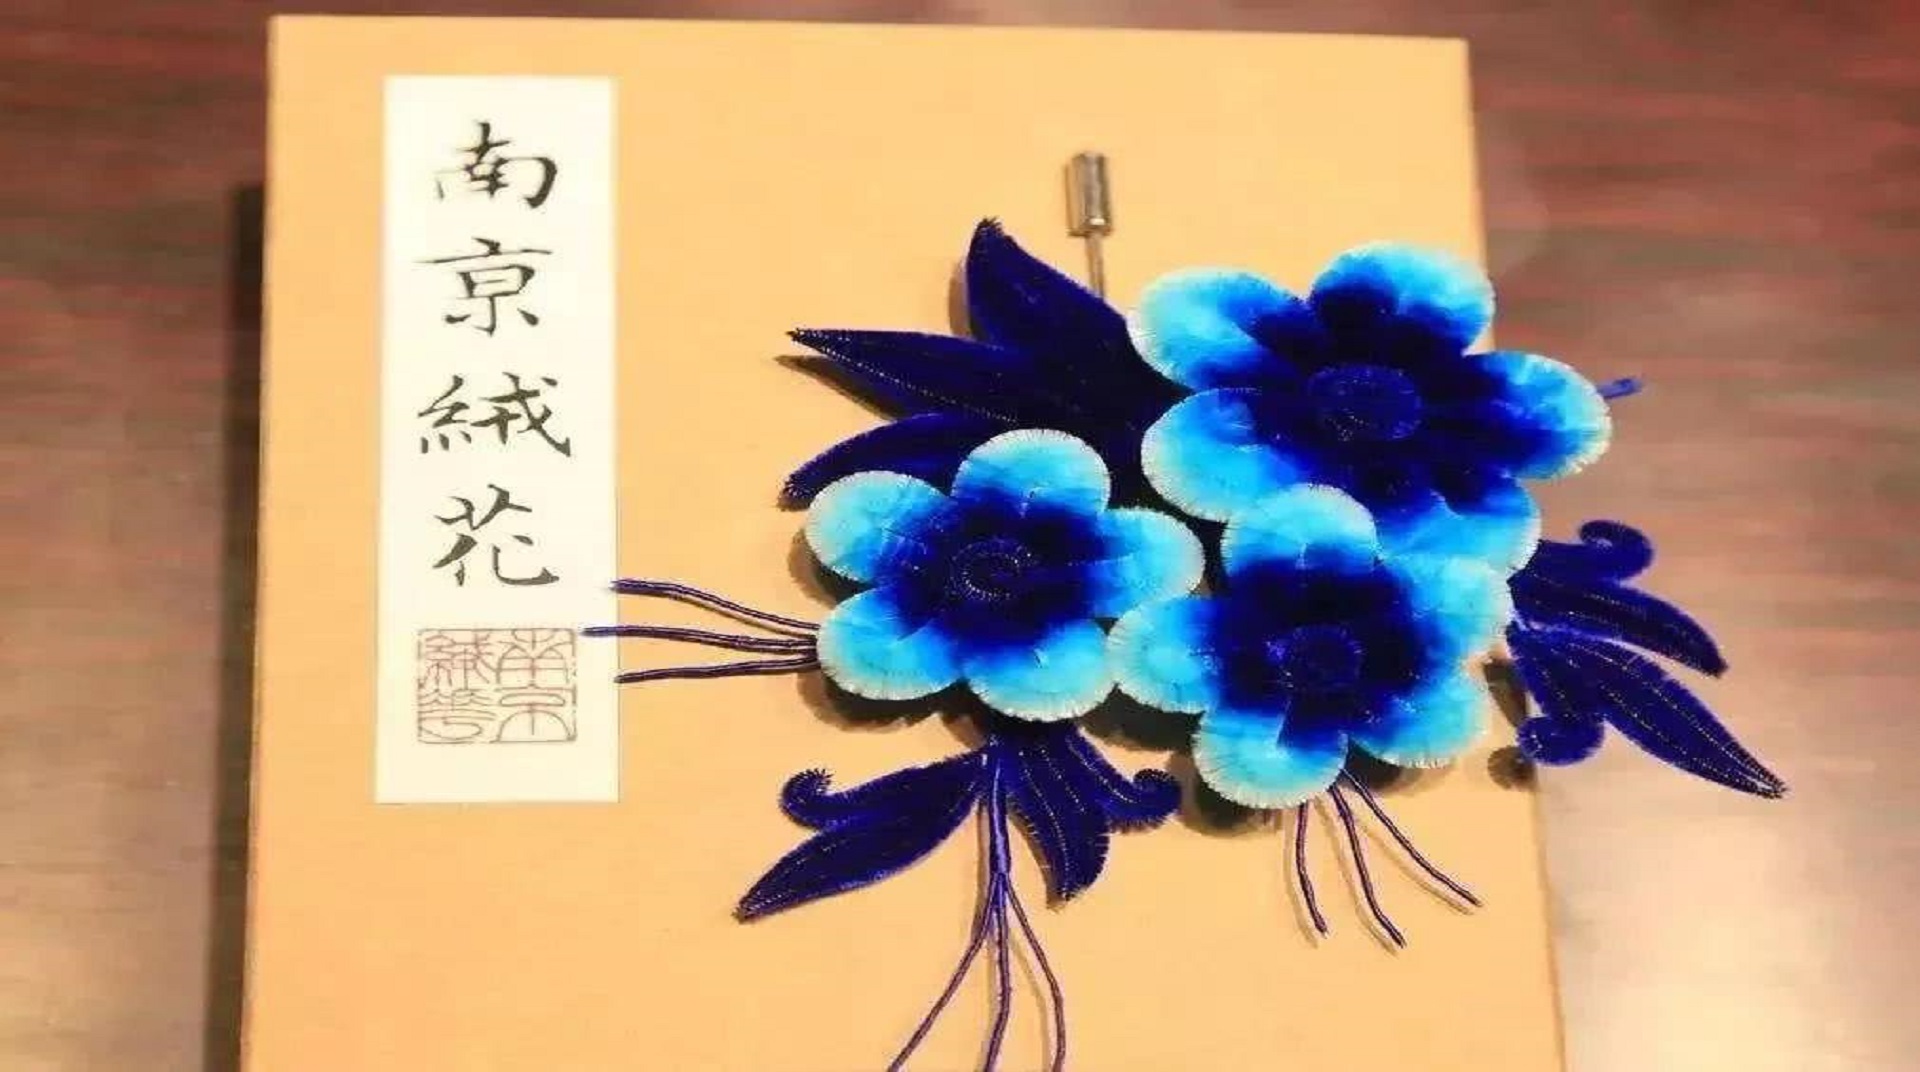 南京絨花
南京
絨花